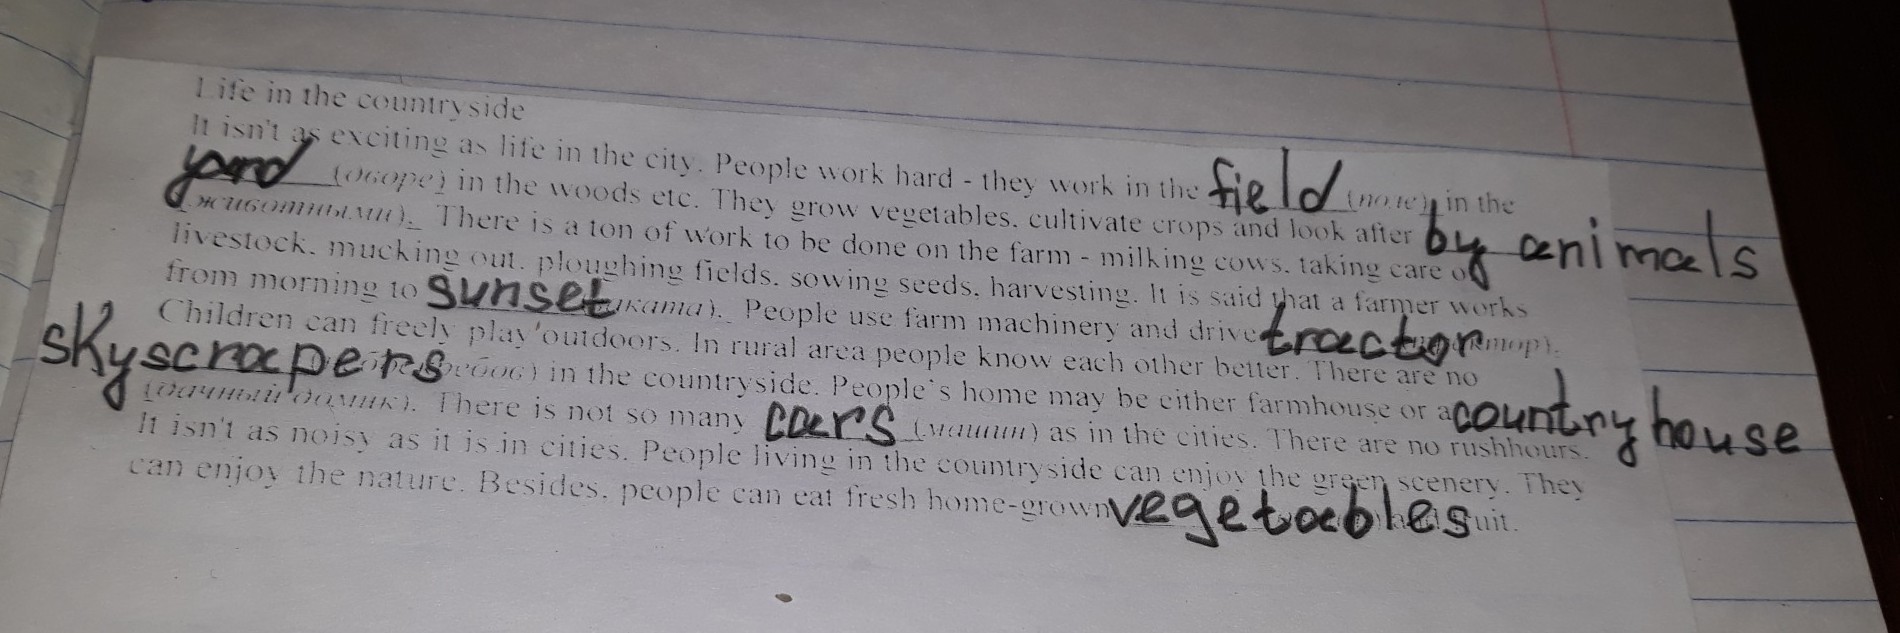 Life in the countryside
It isn't as exciting as life in the city. People work hard - they work in the field (поле), in the
yard (огоре) in the woods etc. They grow vegetables, cultivate crops and look after by animals
(животными). There is a ton of work to be done on the farm - milking cows, taking care of
livestock, mucking out, ploughing fields, sowing seeds, harvesting. It is said that a farmer works
from morning to sunset People use farm machinery and drive tractor
Children can freely play outdoors. In rural area people know each other better. There are no
skyscrapers in the countryside. People's home may be either farmhouse or a country house
(дачный домик). There is not so many cars (машин) as in the cities. There are no rushhours.
It isn't as noisy as it is in cities. People living in the countryside can enjoy the green scenery. They
can enjoy the nature. Besides, people can eat fresh home-grown vegetables